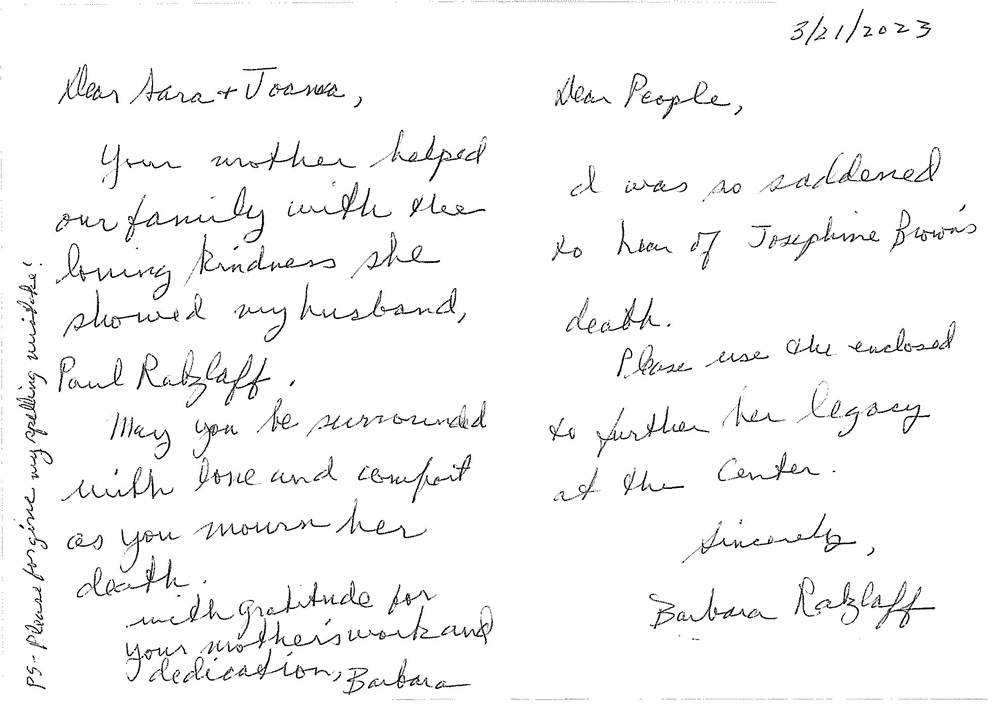 Dear Sara + Joanna,
Your mother helped
our family with the
loving kindness she
showed my husband,
Paul Ratzlaff.
May you be surrounded
with love and comfort
as you mourn her
death.
with gratitude for
your mother's work and
dedication, Barbara
PS - Please forgive my spelling mistake!
3/21/2023
Dear People,
I was so saddened
to hear of Josephine Brown's
death.
Please use the enclosed
to further her legacy
at the Center.
Sincerely,
Barbara Ratzlaff